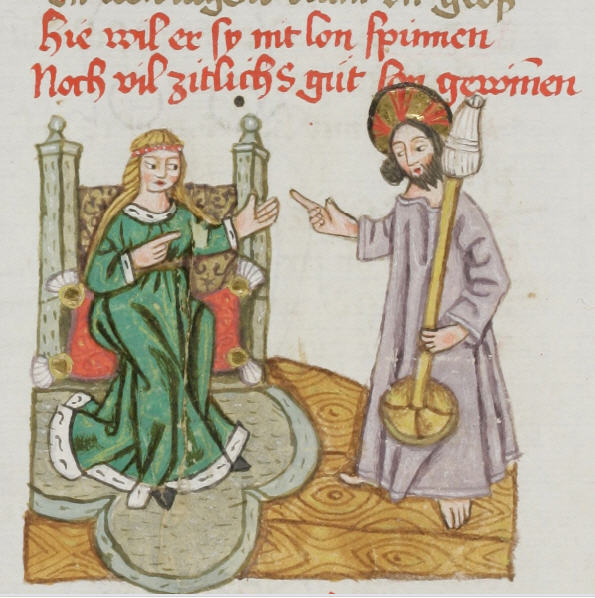 Hie wil er sy nit lon spinnen
Noch vil zitlichs gůt lon gewiñen